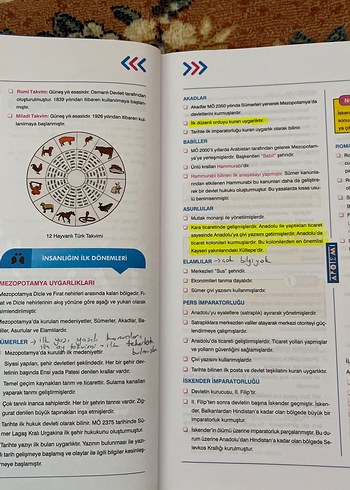 Rumi Takvim: Güneş yılı esaslıdır. Osmanlı Devleti tarafından
oluşturulmuştur. 1839 yılından itibaren kullanılmaya başlan-
mıştır.
Miladi Takvim: Güneş yılı esaslıdır. 1926 yılından itibaren kul-
lanılmaya başlanmıştır.
12 Hayvanlı Türk Takvimi
İNSANLIĞIN İLK DÖNEMLERİ
MEZOPOTAMYA UYGARLIKLARI
Mezopotamya Dicle ve Fırat nehirleri arasında kalan bölgedir. Fı-
rat ve Dicle nehirlerinin akış yönüne göre aşağı ve yukarı olarak
isimlendirilmiştir.
Mezopotamya'da kurulan medeniyetler; Sümerler, Akadlar, Ba-
biller, Asurlular ve Elamlılardır.
SÜMERLER → ilk yazı
Mezopotamya'da kurulan ilk medeniyettir.
Siyasi yapıları, şehir devletleri şeklindedir. Her bir şehir dev-
letinin başında Ensi yada Patesi denilen krallar vardır.
Temel geçim kaynakları tarım ve ticarettir. Sulama kanalları
yaparak tarımı geliştirmişlerdir.
Çok tanrılı inanca sahiplerdir. Her bir şehrin tanrısı vardır. Zig-
gurat denilen büyük tapınakları inşa etmişlerdir.
Tarihte ilk hukuk devleti olarak bilinir. MÖ 2375 tarihinde Sü-
mer Lagaş Kralı Urgakina ilk şehir hukukunu oluşturmuştur.
Tarihte yazıyı ilk bulan uygarlıktır. Yazının bulunması ile yazı-
lı tarih gelişmeye başlamış ve olaylar ile ilgili bilgiler kesinleş-
meye başlamıştır.
AKADLAR
Akadlar MÖ 2350 yılında Sümerleri yenerek Mezopotamya'da
devletlerini kurmuşlardır.
İlk düzenli orduyu kuran uygarlıktır.
Tarihte ilk imparatorluğu kuran uygarlık olarak bilinir.
BABİLLER
MÖ 2000'li yıllarda Arabistan tarafından gelerek Mezopotam-
ya'ya yerleşmişlerdir. Başkentleri "Babil" şehridir.
Ünlü kralları Hammurabi'dir.
Hammurabi bilinen ilk anayasayı yapmıştır. Sümer kanunla-
rından etkilenen Hammurabi bu kanunları daha da geliştire-
rek bir devlet hukuku oluşturmuştur. Bu yasalarda kısas usu-
lü benimsenmiştir.
ASURLULAR
Mutlak monarşi ile yönetilmişlerdir.
Kara ticaretinde gelişmişlerdir. Anadolu ile yaptıkları ticaret
sayesinde Anadolu'ya çivi yazısını getirmişlerdir. Anadolu'da
ticaret kolonileri kurmuşlardır. Bu kolonilerden en önemlisi
Kayseri yakınlarındaki Kültepe'dir.
ELAMLILAR → çok bilgi yok
Merkezleri "Sus" şehridir.
Ekonomileri tarıma dayalıdır.
Sümer çivi yazısını kullanmışlardır.
PERS İMPARATORLUĞU
Anadolu'yu eyaletlere (satraplık) ayırarak yönetmişlerdir.
Satraplıklara merkezden valiler atayarak merkezi otoriteyi güç-
lendirmeye çalışmışlardır.
Anadolu'da ticareti geliştirmişlerdir. Ticaret yolları yapmışlar
ve yolların güvenliğini sağlamışlardır.
Çivi yazısını kullanmışlardır.
Tarihte bilinen ilk posta ve devlet teşkilatını kuran uygarlıktır.
İSKENDER İMPARATORLUĞU
Devletin kurucusu, II. Filip'tir.
II. Filip'ten sonra devletin başına İskender geçmiştir. İsken-
der, Balkanlardan Hindistan'a kadar olan bölgede büyük bir
imparatorluk kurmuştur.
İskender'in ölümü üzerine imparatorluk parçalanmıştır. Bu du-
rum üzerine Anadolu'dan Hindistan'a kadar olan bölgede Se-
levkos Krallığı kurulmuştur.